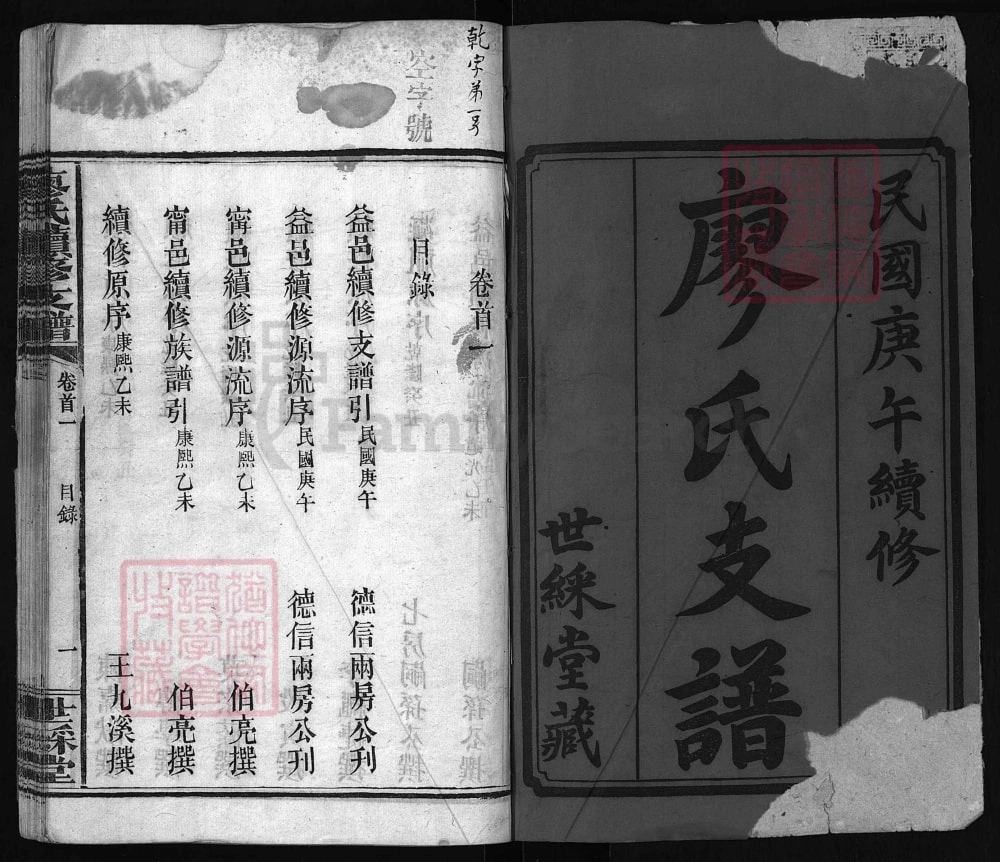 民國庚午續修
廖氏支譜
世綵堂藏
乾字第一号
卷首一
目錄
益邑續修支譜引 民國庚午 德信兩房公刊
益邑續修源流序 民國庚午 德信兩房公刊
甯邑續修源流序 康熙乙未 伯亮撰
甯邑續修族譜引 康熙乙未 伯亮撰
續修原序 康熙乙未 王九溪撰
廖氏續修支譜
卷首一
目錄
一
世綵堂
空字號